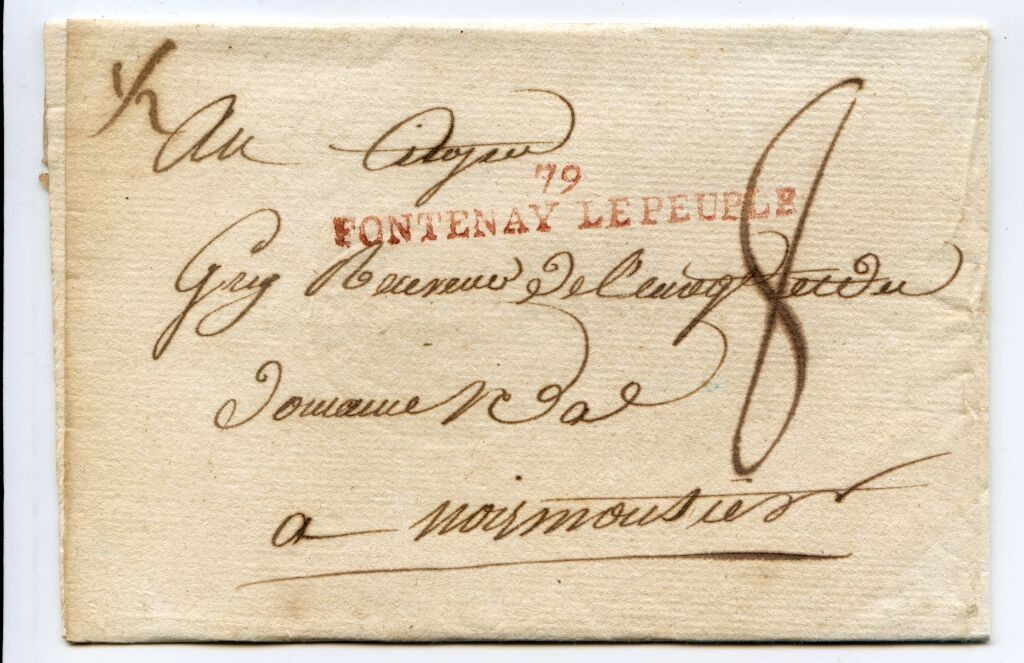 Au Citoyen
79
FONTENAY LE PEUPLE
8
Receveur de l'enreg et du
domaine
a noirmoutier